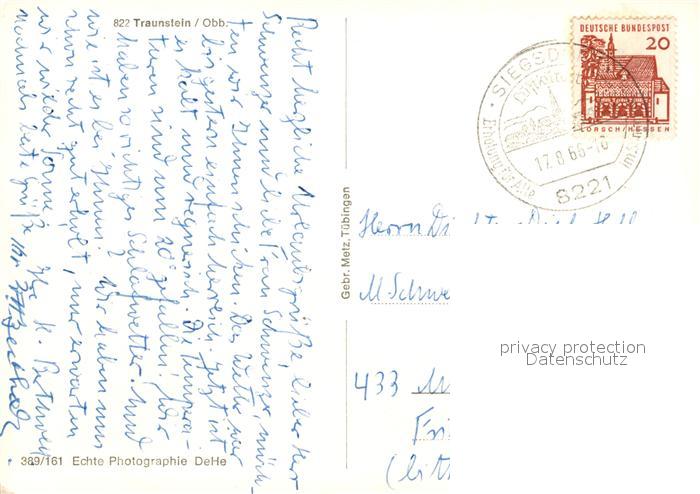 822 Traunstein / Obb.
Recht herzliche Urlaubsgrüße, lieber Herr
Schwenzer und liebe Frau Schwenzer, möch-
ten wir Ihnen schicken. Das Wetter war
bis gestern einfach herrlich. Jetzt ist
es kalt und regnerisch. Die Tempera-
turen sind um 20° gefallen! Wir
haben so richtiges Schlafwetter. Und
wie ist es bei Ihnen? Wir haben uns
schon recht gut erholt, nur erwarten
wir wieder Sonne.
Nochmals beste Grüße Ihre K.
389/161 Echte Photographie DeHe
Gebr. Metz, Tübingen
DEUTSCHE BUNDESPOST
20
LORSCH/HESSEN
SIEGSD
17.8.66-16
8221
Herrn
M. Schwe
433
(
privacy protection
Datenschutz